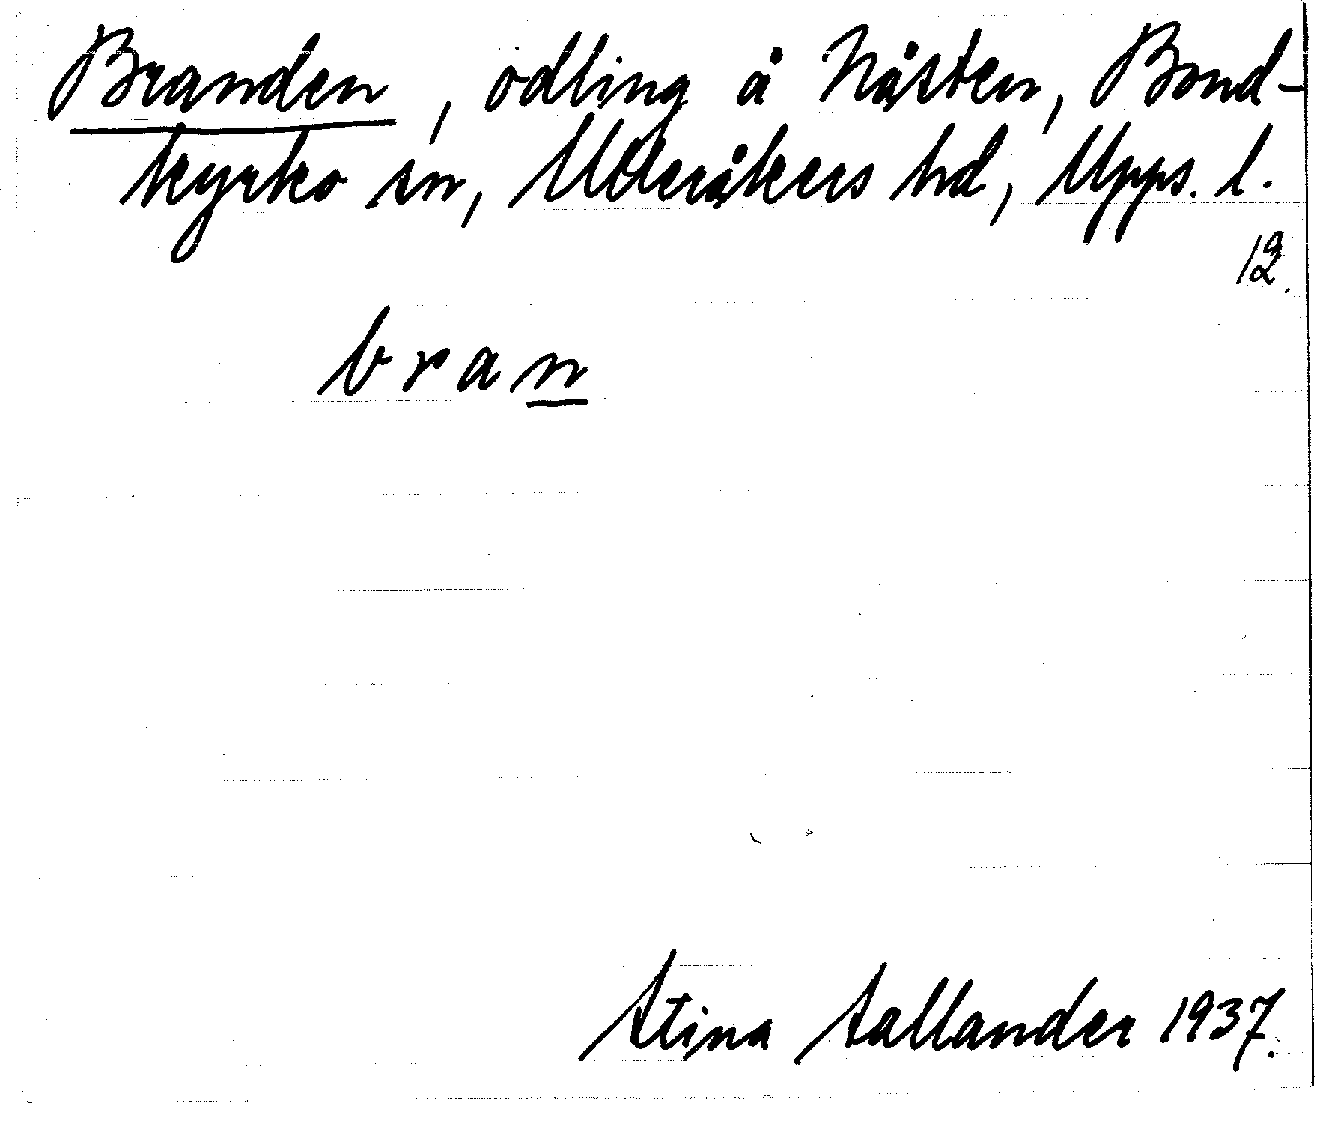 Branden, odling å Nåsten, Bond-
kyrko sn, Ulleråkers hd, Upps. l.
12.
bran
Stina Sallander 1937.